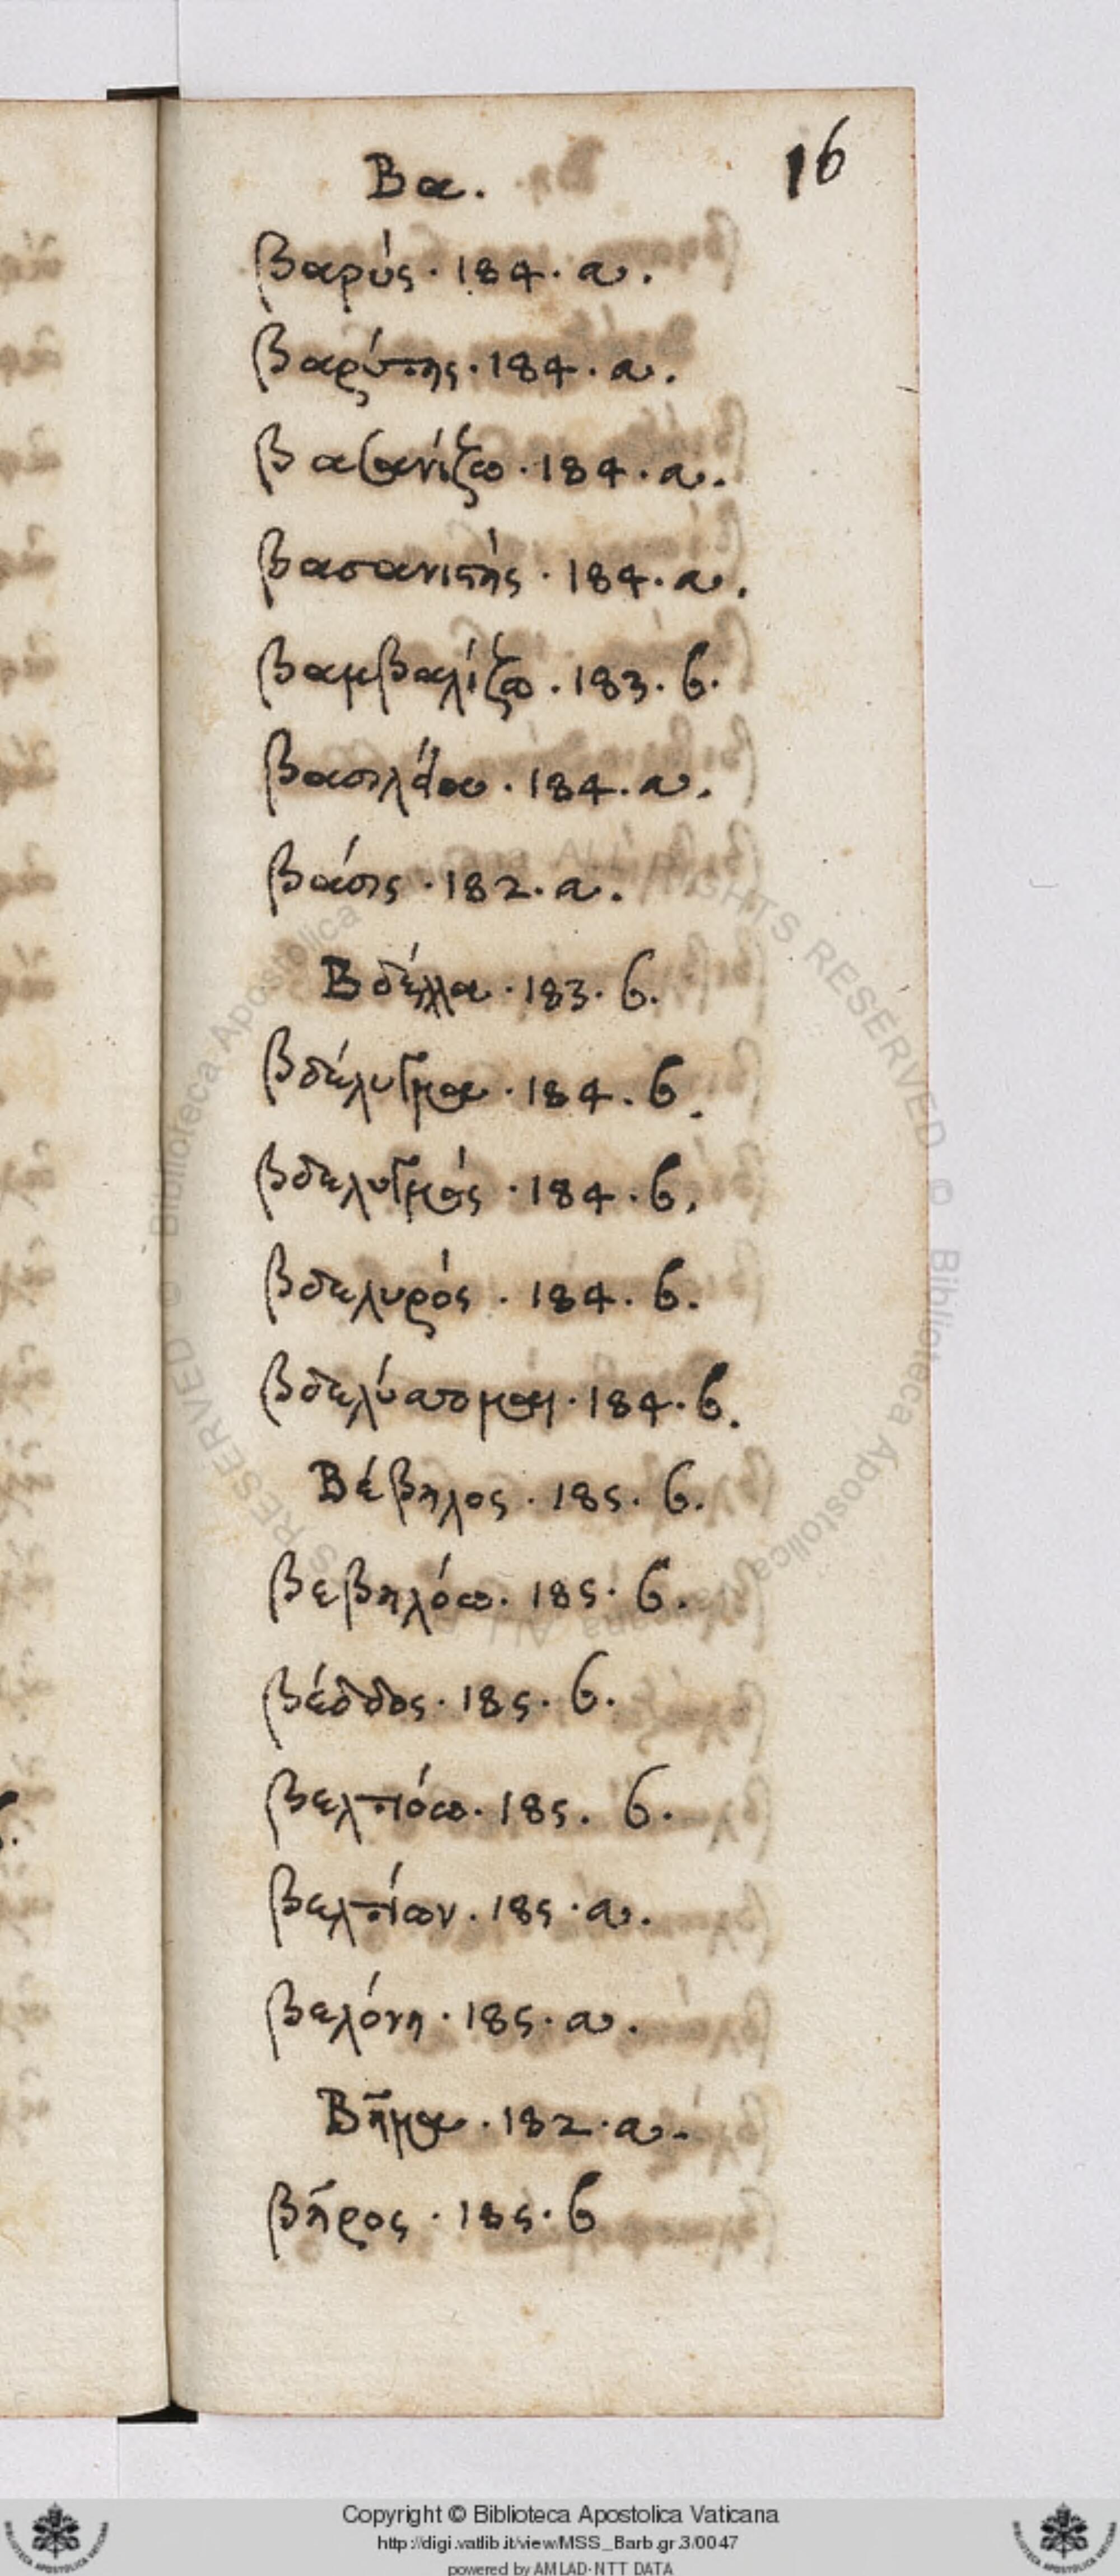 Βα.
16
βαρύς · 184 · a.
βαρύτης · 184 · a.
βασανίζω · 184 · a.
βασανιστής · 184 · a.
βαμβαλίζω · 183 · b.
184 · a.
βάσις · 182 · a.
Βδέλλα · 183 · b.
βδέλυγμα · 184 · b.
βδελυγμός · 184 · b.
βδελυρός · 184 · b.
184 · b.
Βέβηλος · 185 · b.
βεβηλόω · 185 · b.
βέδδος · 185 · b.
βελτιόω · 185 · b.
βελτίων · 185 · a.
βελόνη · 185 · a.
Βῆμα · 182 · a.
βῆρος · 185 · b
Copyright © Biblioteca Apostolica Vaticana
http://digi.vatlib.it/view/MSS_Barb.gr.3/0047
powered by AMLAD-NTT DATA